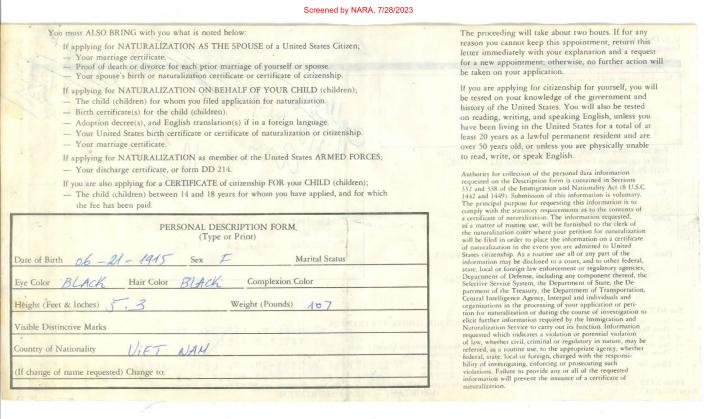 Screened by NARA, 7/28/2023
You must ALSO BRING with you what is noted below:
If applying for NATURALIZATION AS THE SPOUSE of a United States Citizen;
— Your marriage certificate.
— Proof of death or divorce for each prior marriage of yourself or spouse.
— Your spouse's birth or naturalization certificate or certificate of citizenship.
If applying for NATURALIZATION ON BEHALF OF YOUR CHILD (children);
— The child (children) for whom you filed application for naturalization.
— Birth certificate(s) for the child (children).
— Adoption decree(s), and English translation(s) if in a foreign language.
— Your United States birth certificate or certificate of naturalization or citizenship.
— Your marriage certificate.
If applying for NATURALIZATION as member of the United States ARMED FORCES;
— Your discharge certificate, or form DD 214.
If you are also applying for a CERTIFICATE of citizenship FOR your CHILD (children);
— The child (children) between 14 and 18 years for whom you have applied, and for which
the fee has been paid.
PERSONAL DESCRIPTION FORM
(Type or Print)
Date of Birth 06-21-1915 Sex F Marital Status
Eye Color BLACK Hair Color BLACK Complexion Color
Height (Feet & Inches) 5.3 Weight (Pounds) 107
Visible Distinctive Marks
Country of Nationality VIET NAM
(If change of name requested) Change to:
The proceeding will take about two hours. If for any
reason you cannot keep this appointment, return this
letter immediately with your explanation and a request
for a new appointment; otherwise, no further action will
be taken on your application.
If you are applying for citizenship for yourself, you will
be tested on your knowledge of the government and
history of the United States. You will also be tested
on reading, writing, and speaking English, unless you
have been living in the United States for a total of at
least 20 years as a lawful permanent resident and are
over 50 years old, or unless you are physically unable
to read, write, or speak English.
Authority for collection of the personal data information
requested on the Description form is contained in Sections
332 and 338 of the Immigration and Nationality Act (8 U.S.C.
1442 and 1449). Submission of this information is voluntary.
The principal purpose for requesting this information is to
comply with the statutory requirements as to the contents of
a certificate of naturalization. The information requested,
as a matter of routine use, will be furnished to the clerk of
the naturalization court where your petition for naturalization
will be filed in order to place the information on a certificate
of naturalization in the event you are admitted to United
States citizenship. As a routine use all or any part of the
information may be disclosed to a court, and to other federal,
state, local or foreign law enforcement or regulatory agencies,
Department of Defense, including any component thereof, the
Selective Service System, the Department of State, the De-
partment of the Treasury, the Department of Transportation,
Central Intelligence Agency, Interpol and individuals and
organizations in the processing of your application or peti-
tion for naturalization or during the course of investigation to
elicit further information required by the Immigration and
Naturalization Service to carry out its function. Information
requested which indicates a violation or potential violation
of law, whether civil, criminal or regulatory in nature, may be
referred, as a routine use, to the appropriate agency, whether
federal, state, local or foreign, charged with the responsi-
bility of investigating, enforcing or prosecuting such
violations. Failure to provide any or all of the requested
information will prevent the issuance of a certificate of
naturalization.